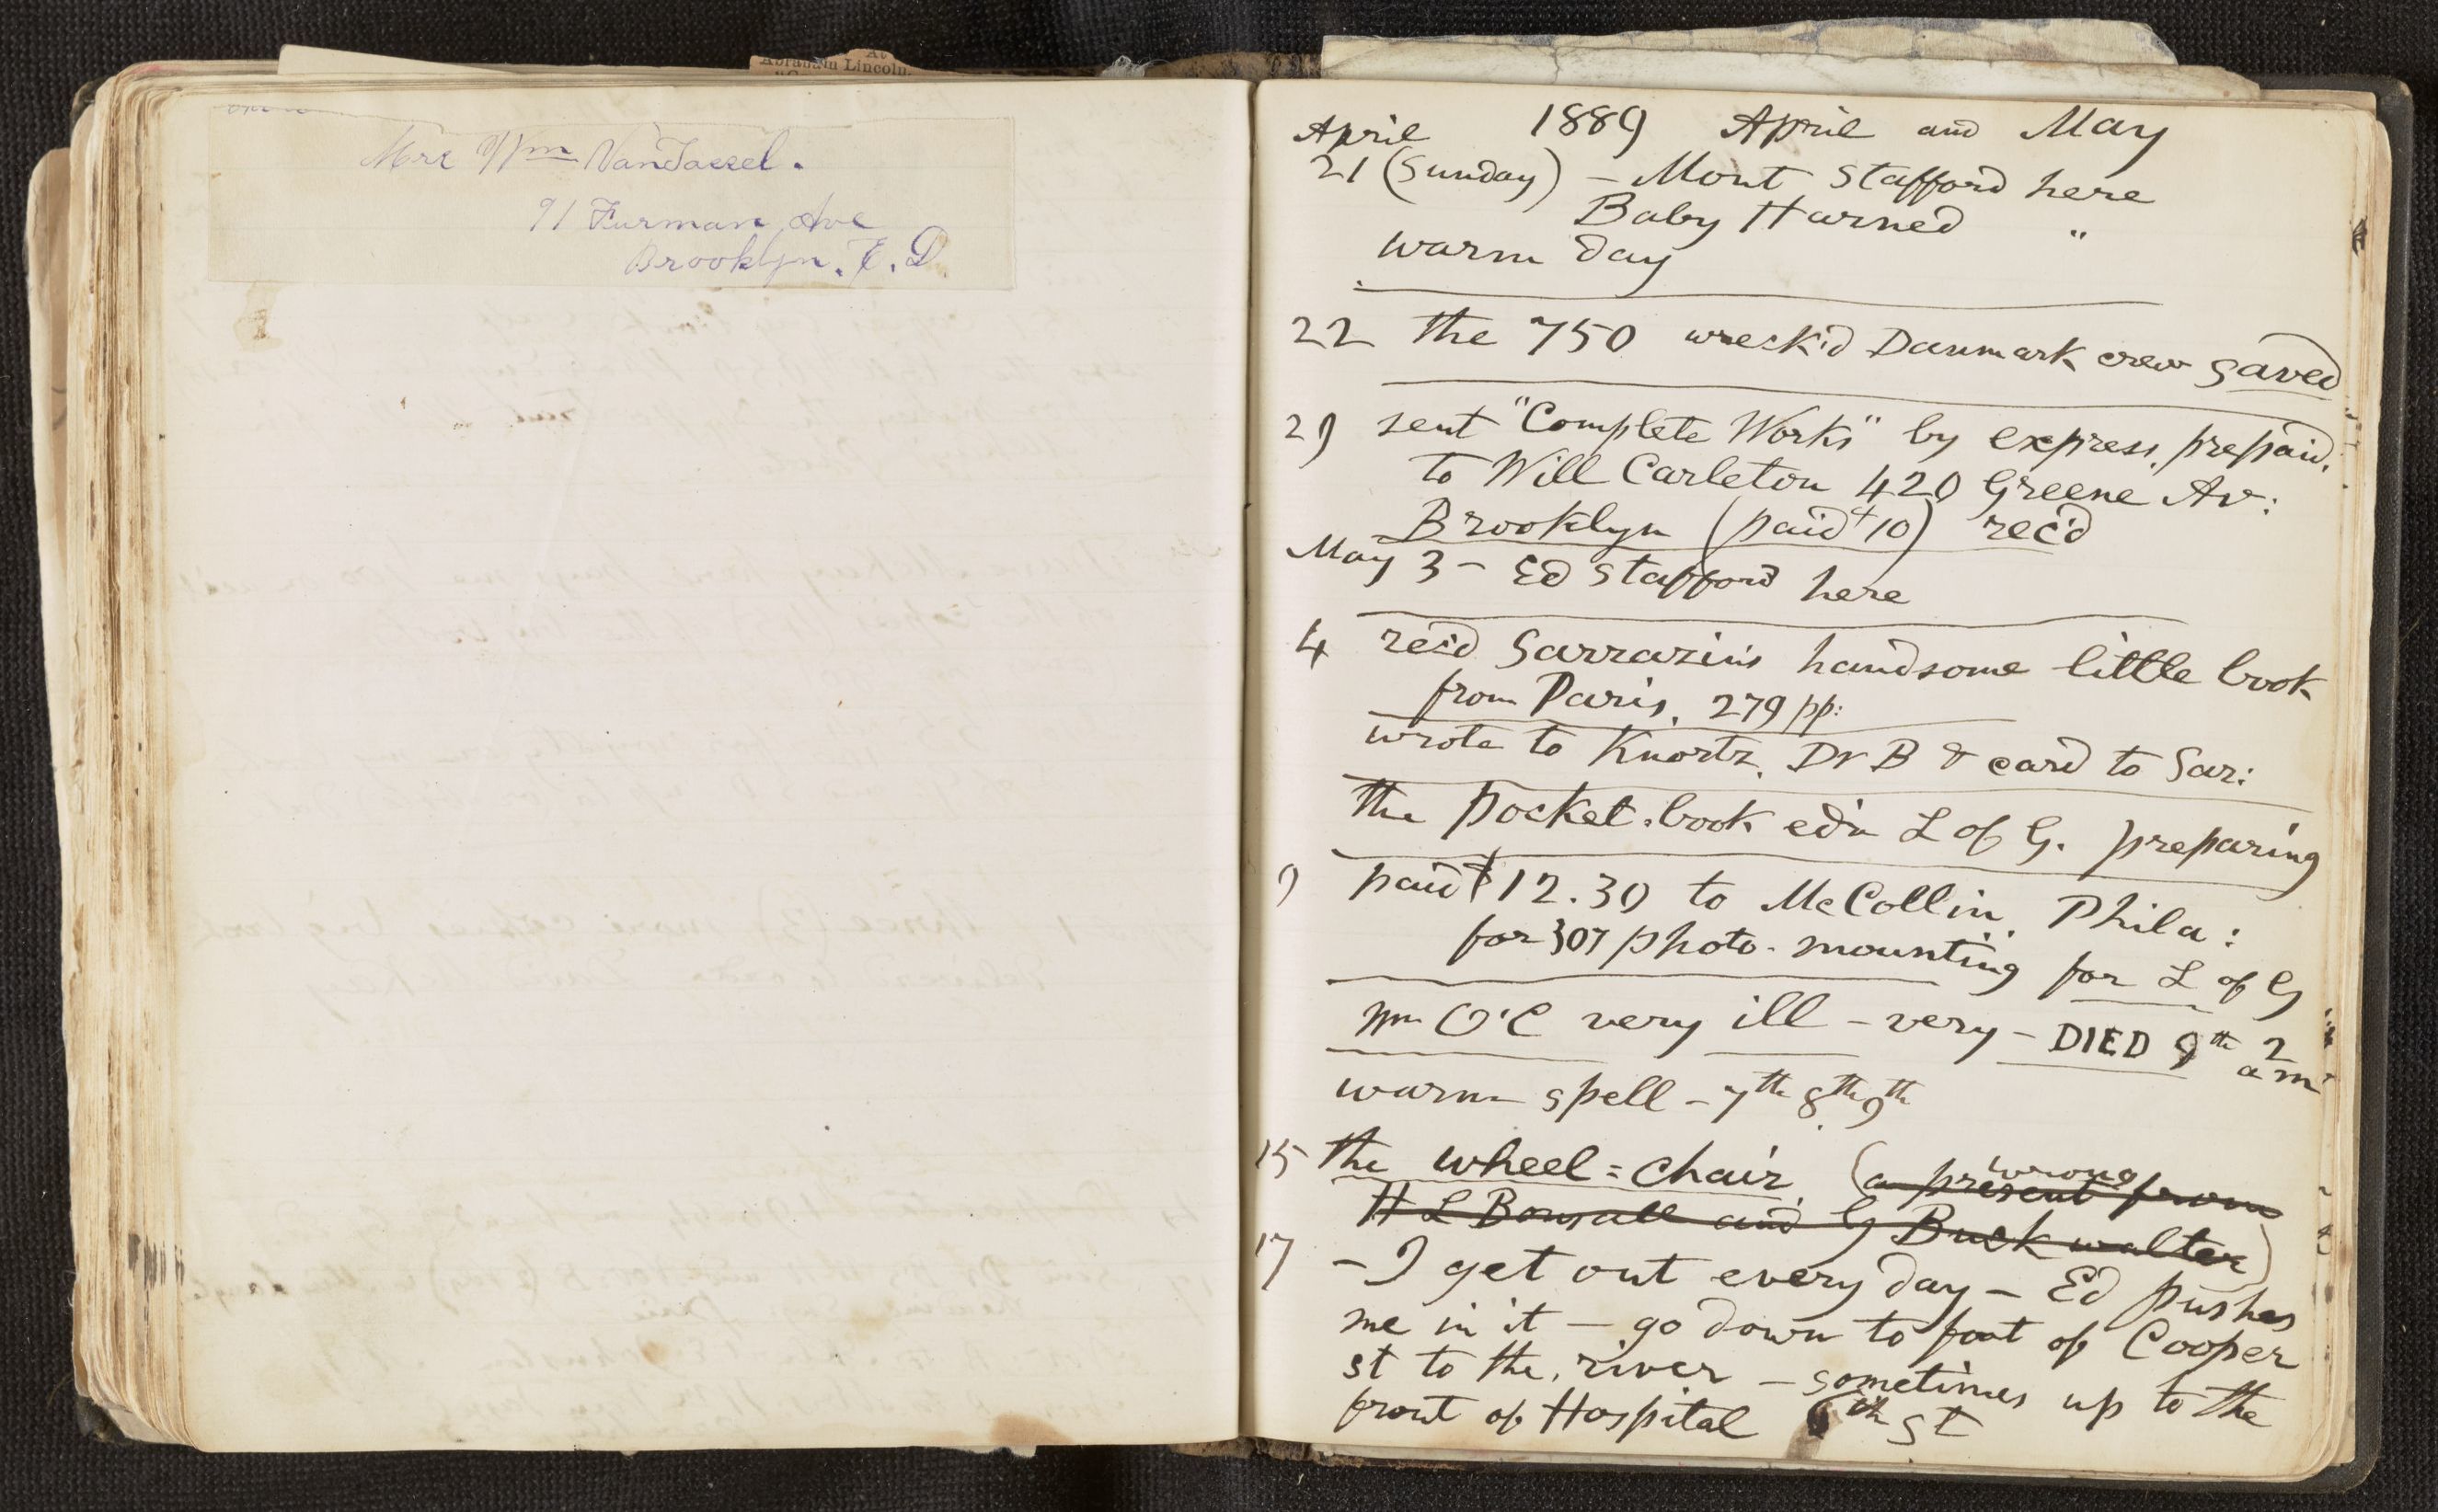 Abraham Lincoln
Mrs Wm VanTassel.
91 Furman Ave
Brooklyn. E. D.
1889 April and May
April
21 (Sunday) – Mont Stafford here
Baby Harned "
warm day
22 the 750 wreck'd Danmark crew saved
29 sent "Complete Works" by express, prepaid,
to Will Carleton 420 Greene Av:
Brooklyn (paid $10) rec'd
May 3 – Ed Stafford here
4 rec'd Sarrazin's handsome little book
from Paris, 279 pp:
wrote to Knortz, Dr B & card to Sar:
the pocket-book ed'n L of G. preparing
9 paid $12.30 to McCollin, Phila:
for 307 photo-mounting for L of G
Wm O'C very ill – very – DIED 9th 2 am
warm spell – 7th 8th 9th
15 the wheel=chair, (a present from
wrong
H L Bonsall and G Buckwalter)
17 – I get out every day – Ed pushes
me in it – go down to foot of Cooper
st to the river – sometimes up to the
front of Hospital 6th St